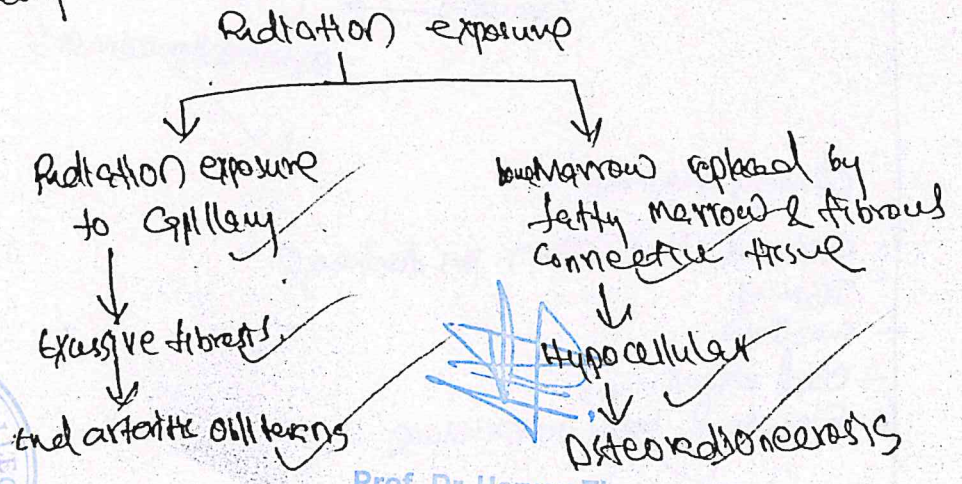 Radiation exposure
Radiation exposure
to Capillary
Excessive fibrosis.
End arteritis obliterans
bone Marrow replaced by
fatty marrow & fibrous
Connective tissue
Hypocellular
Osteoradionecrosis
Prof. Dr.